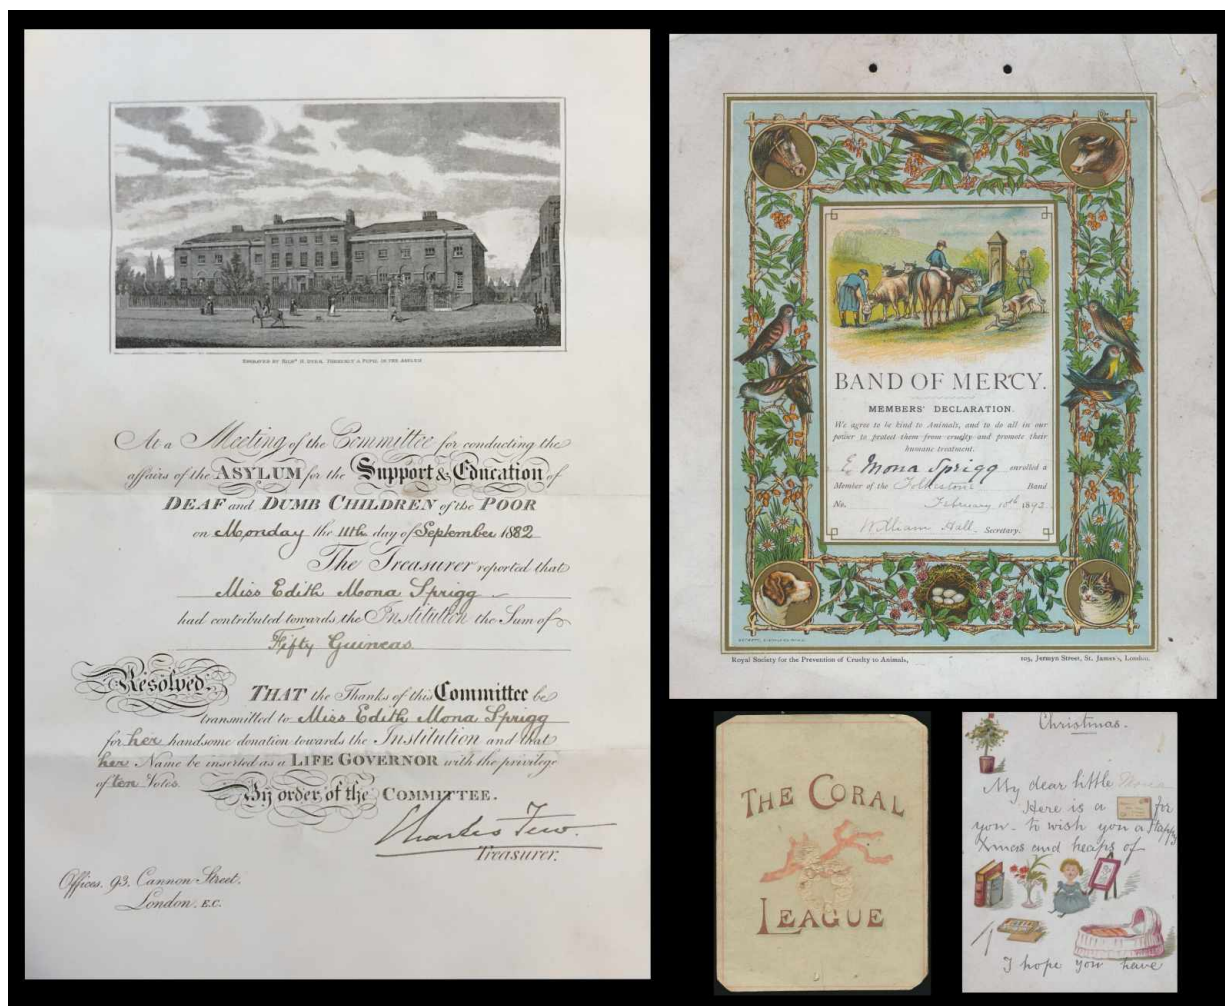 ENGRAVED BY
H.
FORMERLY A PUPIL IN THE ASYLUM
At a Meeting of the Committee for conducting the
affairs of the ASYLUM for the Support & Education of
DEAF and DUMB CHILDREN of the POOR
on Monday the 11th day of September 1882
The Treasurer reported that
Miss Edith Mona Sprigg
had contributed towards the Institution the Sum of
Fifty Guineas
Resolved. THAT the Thanks of this Committee be
transmitted to Miss Edith Mona Sprigg
for her handsome donation towards the Institution and that
her Name be inserted as a LIFE GOVERNOR with the privilege
of ten Votes.
By order of the COMMITTEE.
Charles Few.
Treasurer.
Offices, 93, Cannon Street,
London, E.C.
BAND OF MERCY.
MEMBERS' DECLARATION.
We agree to be kind to Animals, and to do all in our
power to protect them from cruelty and promote their
humane treatment.
E. Mona Sprigg enrolled a
Member of the Folkestone Band
No. February 10th 1892
William Hall Secretary.
Royal Society for the Prevention of Cruelty to Animals, 105, Jermyn Street, St. James's, London.
THE CORAL
LEAGUE
Christmas.
My dear little Mona
Here is a for
you - to wish you a Happy
Xmas and heaps of
I hope you have